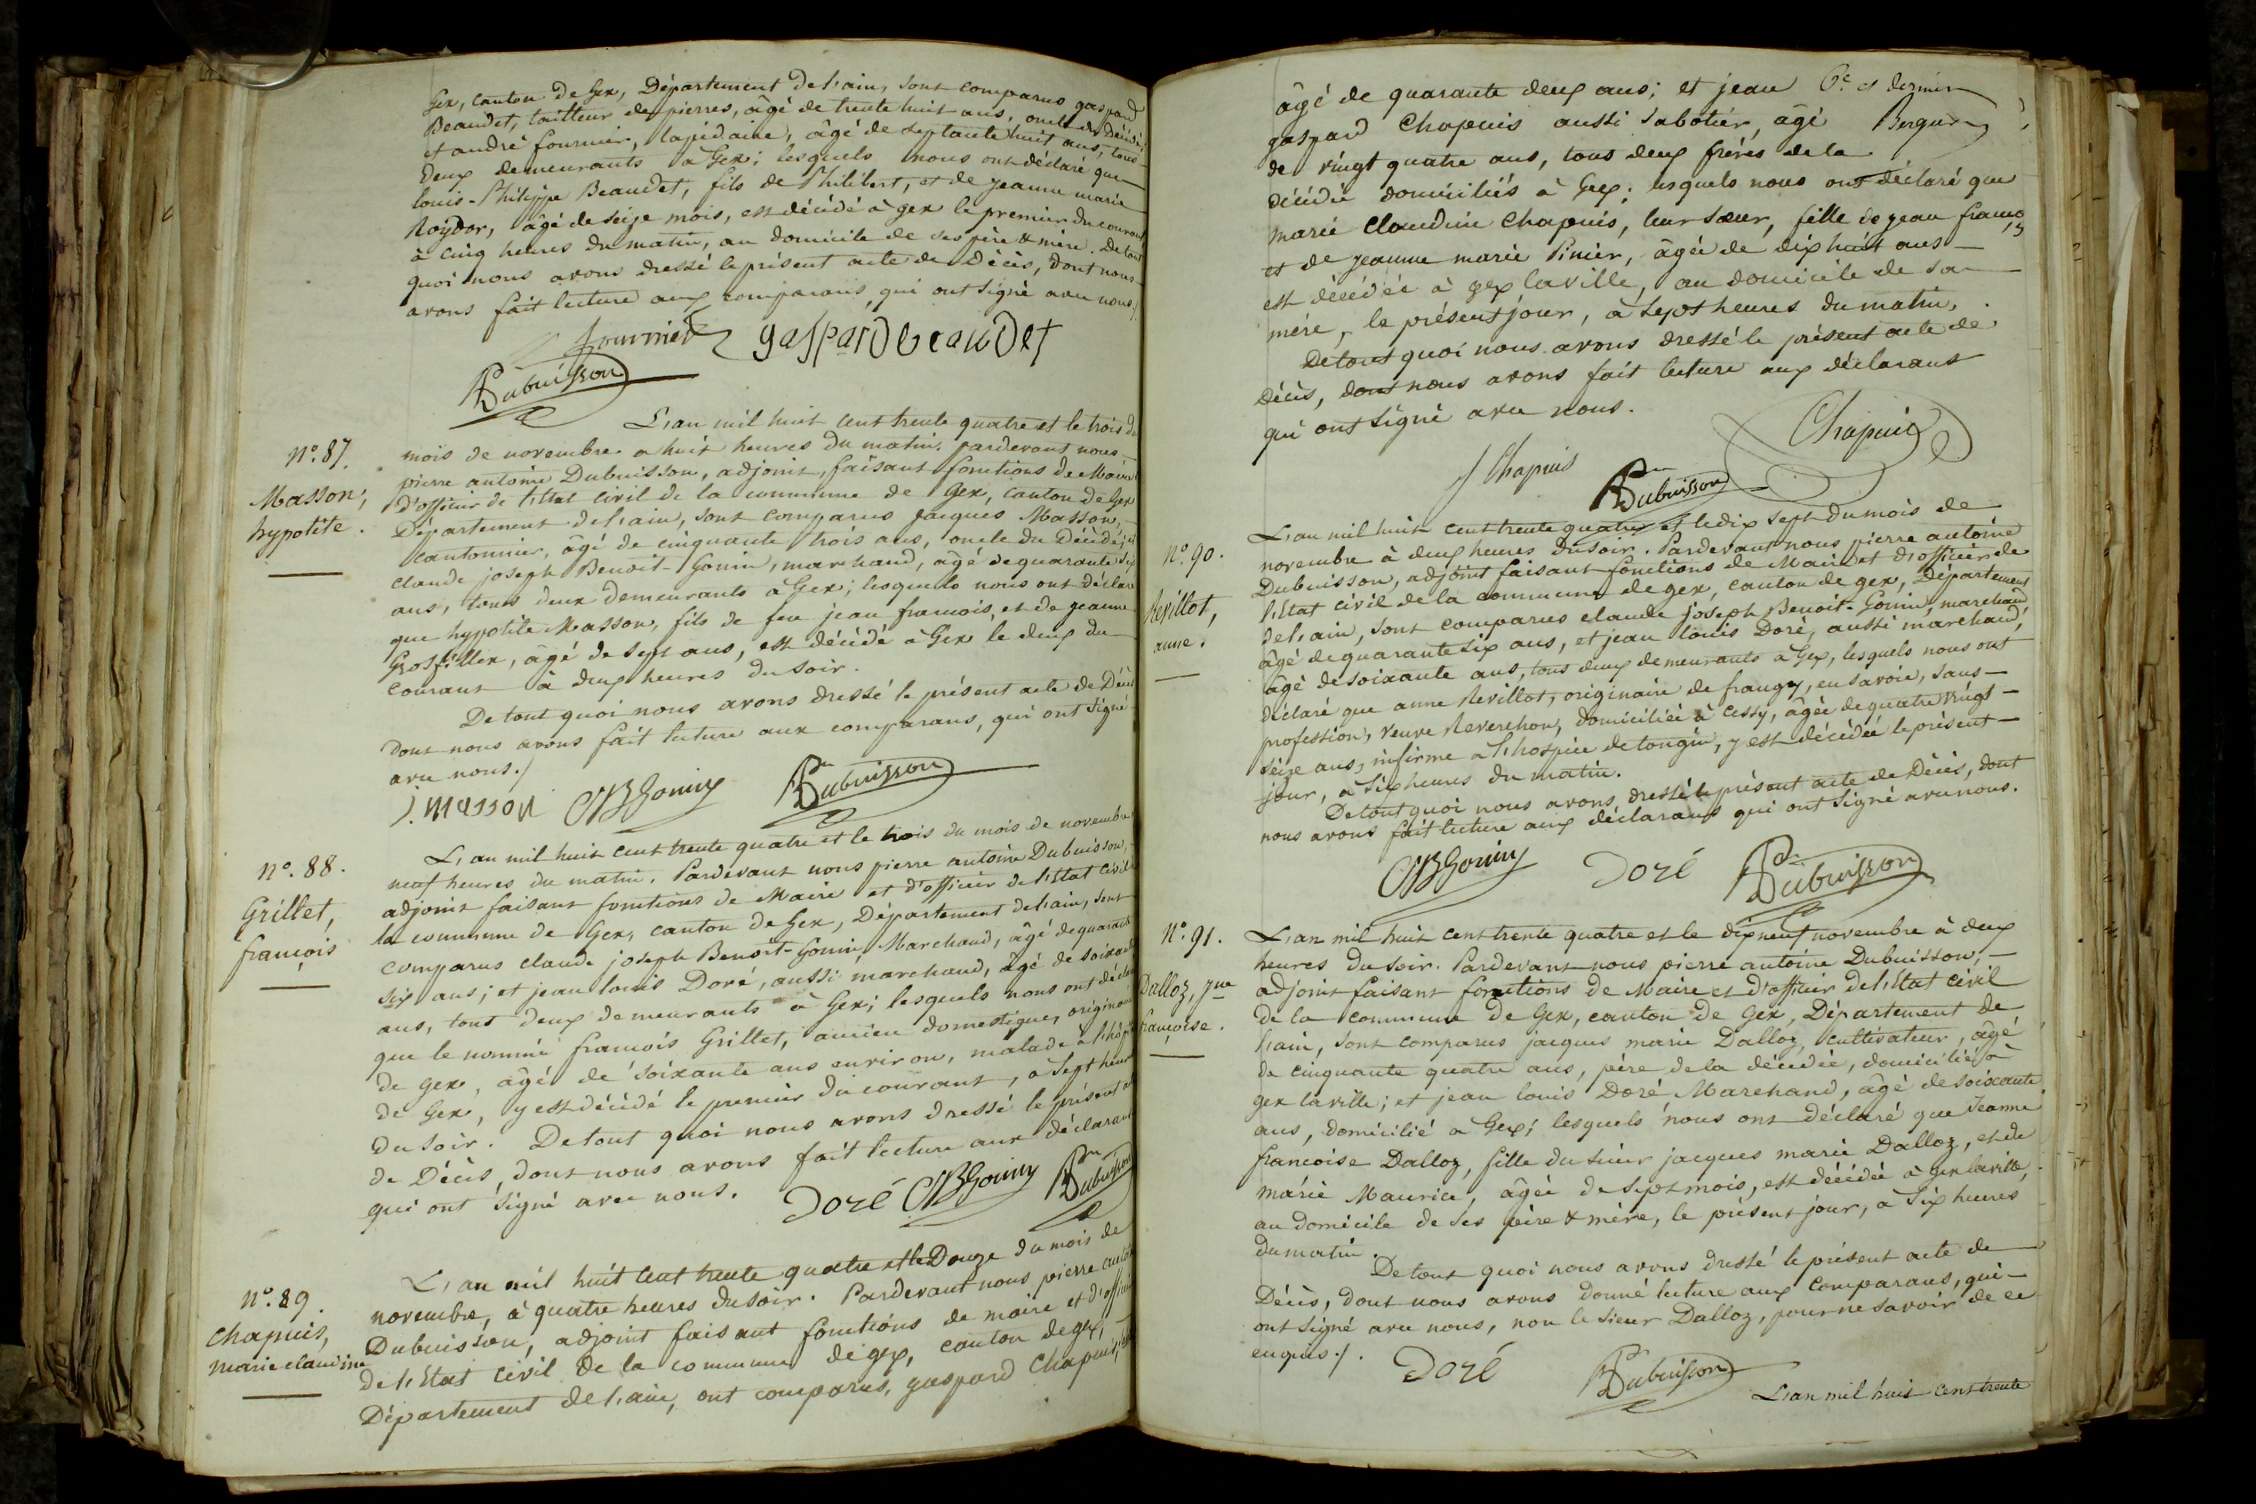 Gex, canton de Gex, Département de l'ain, sont comparus gaspard
Beaudet, tailleur de pierres, âgé de trente huit ans, oncle du décédé,
et andré fournier, lapidaire, âgé de septante huit ans, tous
deux demeurants à Gex; lesquels nous ont déclaré que
louis-Philippe Beaudet, fils de Philibert, et de jeanne marie
Roydor, âgé de seize mois, est décédé à gex le premier du courant
à cinq heures du matin, au domicile de ses père & mère. De tout
quoi nous avons dressé le présent acte de Décès, dont nous
avons fait lecture aux comparans, qui ont signé avec nous./
fournier gaspard beaudet
Dubuisson
N°. 87.
Masson,
hypolite.
L'an mil huit cent trente quatre et le trois du
mois de novembre a huit heures du matin, pardevant nous
pierre antoine Dubuisson, adjoint, faisant fonctions de Maire
d'officier de l'Etat civil de la commune de Gex, canton de Gex
Département de l'ain, sont comparus jacques Masson,
cantonnier, âgé de cinquante trois ans, oncle du Décédé, et
claude joseph Benoit-Gonin, marchand, âgé de quarante six
ans, tous deux demeurants à Gex; lesquels nous ont déclaré
que hypolite Masson, fils de feu jean francois, et de jeanne
Grosfiller, âgé de sept ans, est décédé à Gex le deux du
courant à deux heures du soir.
De tout quoi nous avons dressé le présent acte de Décès
dont nous avons fait lecture aux comparans, qui ont signé
avec nous./
j. masson CJBGonin Dubuisson
n°. 88.
Grillet,
françois
L'an mil huit cent trente quatre et le trois du mois de novembre
neuf heures du matin. Pardevant nous pierre antoine Dubuisson,
adjoint faisant fonctions de Maire et d'officier de l'Etat civil
la commune de Gex, canton de Gex, Département de l'ain, sont
comparus claude joseph Benoit-Gonin, Marchand, âgé de quarante
six ans; et jean louis Doré, aussi marchand, âgé de soixante
ans, tous deux demeurants à Gex; lesquels nous ont déclaré
que le nommé francois Grillet, ancien domestique, originaire
de gex, âgé de soixante ans environ, malade à l'hôpital
de Gex, y est décédé le premier du courant, à sept heures
du soir. De tout quoi nous avons dressé le présent acte
de Décès, dont nous avons fait lecture aux déclarans
qui ont signé avec nous. Doré CJBGonin Dubuisson
N°. 89.
Chapuis,
marie claudine
L'an mil huit cent trente quatre et le Douze du mois de
novembre, à quatre heures du soir. Pardevant nous pierre antoine
Dubuisson, adjoint faisant fonctions de maire et d'officier
de l'Etat civil de la commune de gex, canton de gex,
Département de l'ain, ont comparus, gaspard Chapuis,
âgé de quarante deux ans; et jean 6e. et dernier
gaspard Chapuis aussi sabotier, âgé
de vingt quatre ans, tous deux frères de la
décédée domiciliés à Gex; lesquels nous ont déclaré que
marie Claudine Chapuis, leur sœur, fille de jean françois
et de jeanne marie Pinier, âgée de dix huit ans
est décédée à gex la ville, au domicile de sa
mère, le présent jour, à sept heures du matin,
De tout quoi nous avons dressé le présent acte de
décès, dont nous avons fait lecture aux déclarans
qui ont signé avec nous.
Chapuis
J Chapuis Dubuisson
N°. 90.
Revillot,
anne.
L'an mil huit cent trente quatre et le dix sept du mois de
novembre à deux heures du soir. Pardevant nous pierre antoine
Dubuisson, adjoint faisant fonctions de Maire et d'officier de
l'Etat civil de la commune de gex, canton de gex, Département
de l'ain, sont comparus claude joseph Benoit-Gonin, marchand,
âgé de quarante six ans, et jean louis Doré, aussi marchand,
âgé de soixante ans, tous deux demeurants à Gex, lesquels nous ont
déclaré que anne Revillot, originaire de frangy, en savoie, sans
profession, veuve Reverchon, domiciliée à Cessy, âgée de quatre vingt
seize ans, infirme à l'hospice de tougin, y est décédée le présent
jour, à six heures du matin.
De tout quoi nous avons dressé le présent acte de Décès, dont
nous avons fait lecture aux déclarans qui ont signé avec nous.
CJBGonin Doré Dubuisson
N°. 91.
Dalloz, jne
françoise.
L'an mil huit cent trente quatre et le dix neuf novembre à deux
heures du soir. Pardevant nous pierre antoine Dubuisson,
adjoint faisant fonctions de Maire et d'officier de l'Etat civil
de la commune de Gex, canton de Gex, Département de
l'ain, sont comparus jacques marie Dalloz, cultivateur, âgé
de cinquante quatre ans, père de la décédée, domicilié à
gex la ville; et jean louis Doré Marchand, âgé de soixante
ans, domicilié à Gex; lesquels nous ont déclaré que Jeanne
francoise Dalloz, fille du sieur jacques marie Dalloz, et de
marie Maurice, âgée de sept mois, est décédée à gex la ville,
au domicile de ses père & mère, le présent jour, à six heures
du matin.
De tout quoi nous avons dressé le présent acte de
Décès, dont nous avons donné lecture aux comparans, qui
ont signé avec nous, non le sieur Dalloz, pour ne savoir de ce
enquis./.
Doré Dubuisson
L'an mil huit cent trente